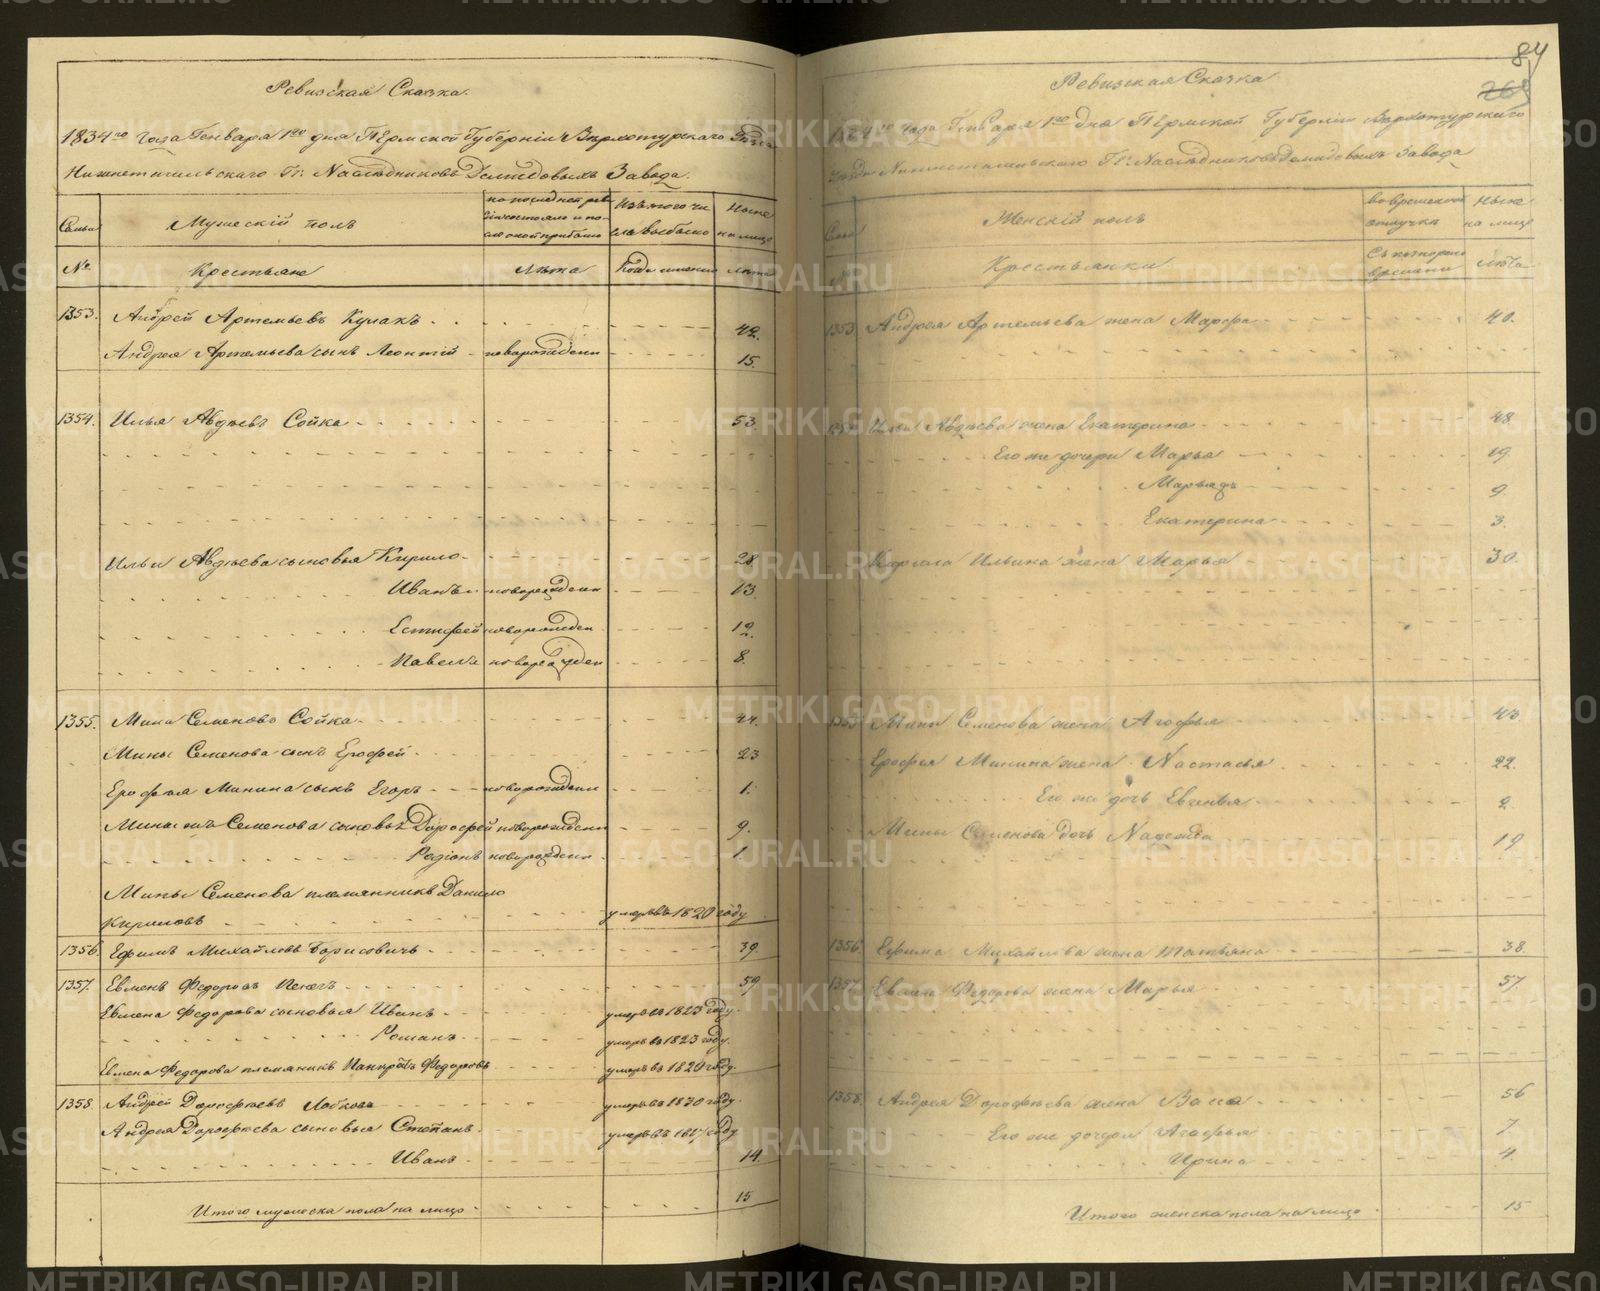 Ревизская Сказка.
1834го года Генваря 1го дня Пермской Губернии Верхотурскаго Уезда
Нижнетагильскаго Гг. Наследниковъ Демидовыхъ Завода.
Семьи
Мужескій полъ
по последней ревизіи состояло и после оной прибыло
Изъ того числа выбыло
Ныне на лицо
№
Крестьяне
Лета
Когда именно
Лета
1353. Андрей Артемьевъ Кулакъ 42.
Андрея Артемьева сынъ Леонтій новорожденн 15.
1354. Илья Авдеевъ Сойка 53.
Ильи Авдеева сыновья Кирило 28.
Иванъ новорожденн 13.
Естифей новорожден 12.
Павелъ новорожден 8.
1355. Мина Семеновъ Сойка 44.
Мины Семенова сынъ Ерофей 23
Ерофея Минина сынъ Егоръ новорожденн 1.
Мины жъ Семенова сыновья Дорофей новорожденн 9.
Родіонъ новорожденн 1.
Мины Семенова племянникъ Данило
Кириловъ умеръ въ 1820 году
1356. Ефимъ Михайловъ Борисовичь 39.
1357. Евменъ Федоровъ 59
Евмена Федорова сыновья Иванъ умеръ въ 1823 году.
Романъ умеръ въ 1823 году.
Евмена Федорова племяникъ Федоровъ умеръ въ 1820 году.
1358. Андрей Дорофеевъ умеръ въ 1830 году.
Андрея Дорофеева сыновья Степанъ умеръ въ году
Иванъ 14.
Итого мужеска пола на лицо 15
84
Ревизская Сказка
1834го года Генваря 1го дня Пермской Губернии Верхотурскаго
Уезда Нижнетагильскаго Гг. Наследниковъ Демидовыхъ Завода
Семьи
Женскій полъ
во временной отлучке
Ныне на лицо
№
Крестьянки
Съ котораго времени
Лета
1353 Андрея Артемьева жена Марфа 40.
1354 Ильи Авдеева жена Екатерина 48.
Его же дочери Марья 19.
9.
Екатерина 3.
Кирила Ильина жена Марья 30.
1355 Мины Семенова жена Агафья 43
Ерофея Минина жена Настасья 22.
Его же дочь Евгенья 2.
Мины Семенова дочь Надежда 19
1356 Ефима Михайлова жена Татьяна 38.
1357 Евмена Федорова жена Марья 57.
1358. Андрея Дорофеева жена 56
Его же дочери Агафья 7.
Ирина 4.
Итого женска пола на лицо 15
METRIKI.GASO-URAL.RU